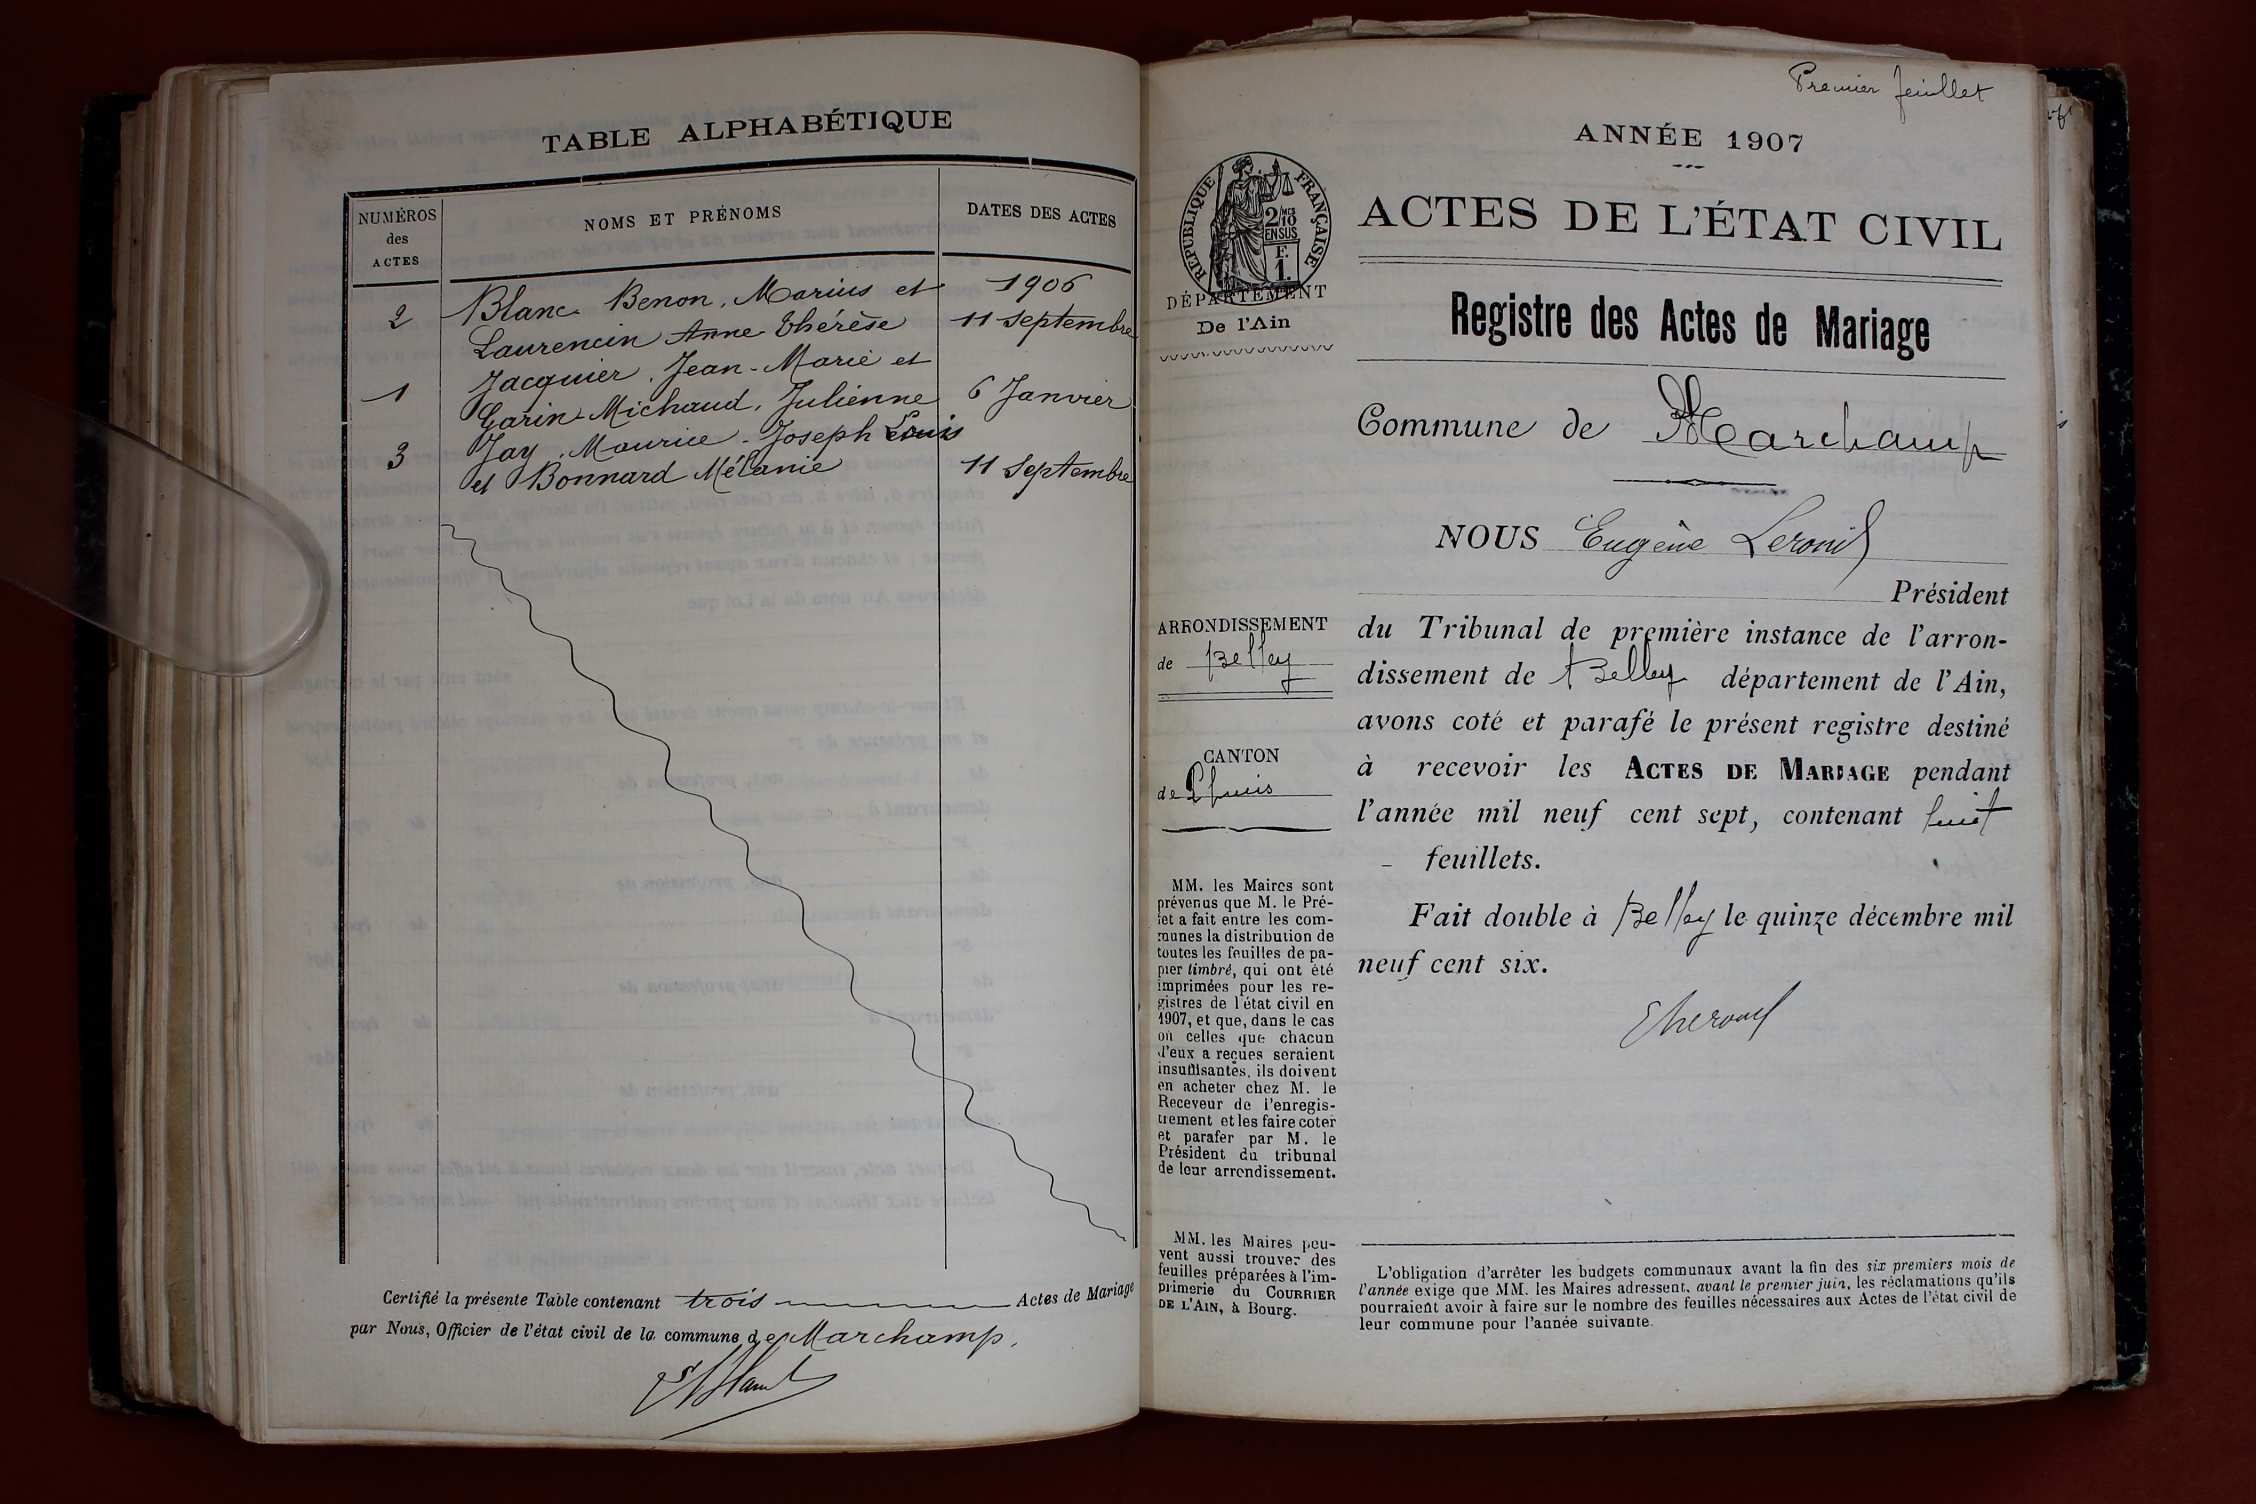 TABLE ALPHABÉTIQUE
NUMÉROS
des
ACTES
NOMS ET PRÉNOMS
DATES DES ACTES
1906
2 Blanc Benon, Marius et
Laurencin Anne Thérèse 11 septembre
Jacquier, Jean-Marie et
1 Garin-Michaud, Julienne 6 Janvier
3 Jay, Maurice-Joseph Louis
et Bonnard Mélanie 11 septembre
Certifié la présente Table contenant trois Actes de Mariage
par Nous, Officier de l'état civil de la commune de Marchamp.
Premier feuillet
ANNÉE 1907
RÉPUBLIQUE FRANÇAISE
2/10
EN SUS
F.
1.
DÉPARTEMENT
De l'Ain
ACTES DE L'ÉTAT CIVIL
Registre des Actes de Mariage
Commune de Marchamp
NOUS Eugène
Président
du Tribunal de première instance de l'arron-
dissement de Belley département de l'Ain,
avons coté et parafé le présent registre destiné
à recevoir les ACTES DE MARIAGE pendant
l'année mil neuf cent sept, contenant huit
- feuillets.
Fait double à Belley le quinze décembre mil
neuf cent six.
ARRONDISSEMENT
de Belley
CANTON
de Lhuis
MM. les Maires sont
prévenus que M. le Pré-
fet a fait entre les com-
munes la distribution de
toutes les feuilles de pa-
pier timbré, qui ont été
imprimées pour les re-
gistres de l'état civil en
1907, et que, dans le cas
où celles que chacun
d'eux a reçues seraient
insuffisantes, ils doivent
en acheter chez M. le
Receveur de l'enregis-
trement et les faire coter
et parafer par M. le
Président du tribunal
de leur arrondissement.
MM. les Maires peu-
vent aussi trouver des
feuilles préparées à l'im-
primerie du COURRIER
DE L'AIN, à Bourg.
L'obligation d'arrêter les budgets communaux avant la fin des six premiers mois de
l'année exige que MM. les Maires adressent, avant le premier juin, les réclamations qu'ils
pourraient avoir à faire sur le nombre des feuilles nécessaires aux Actes de l'état civil de
leur commune pour l'année suivante.